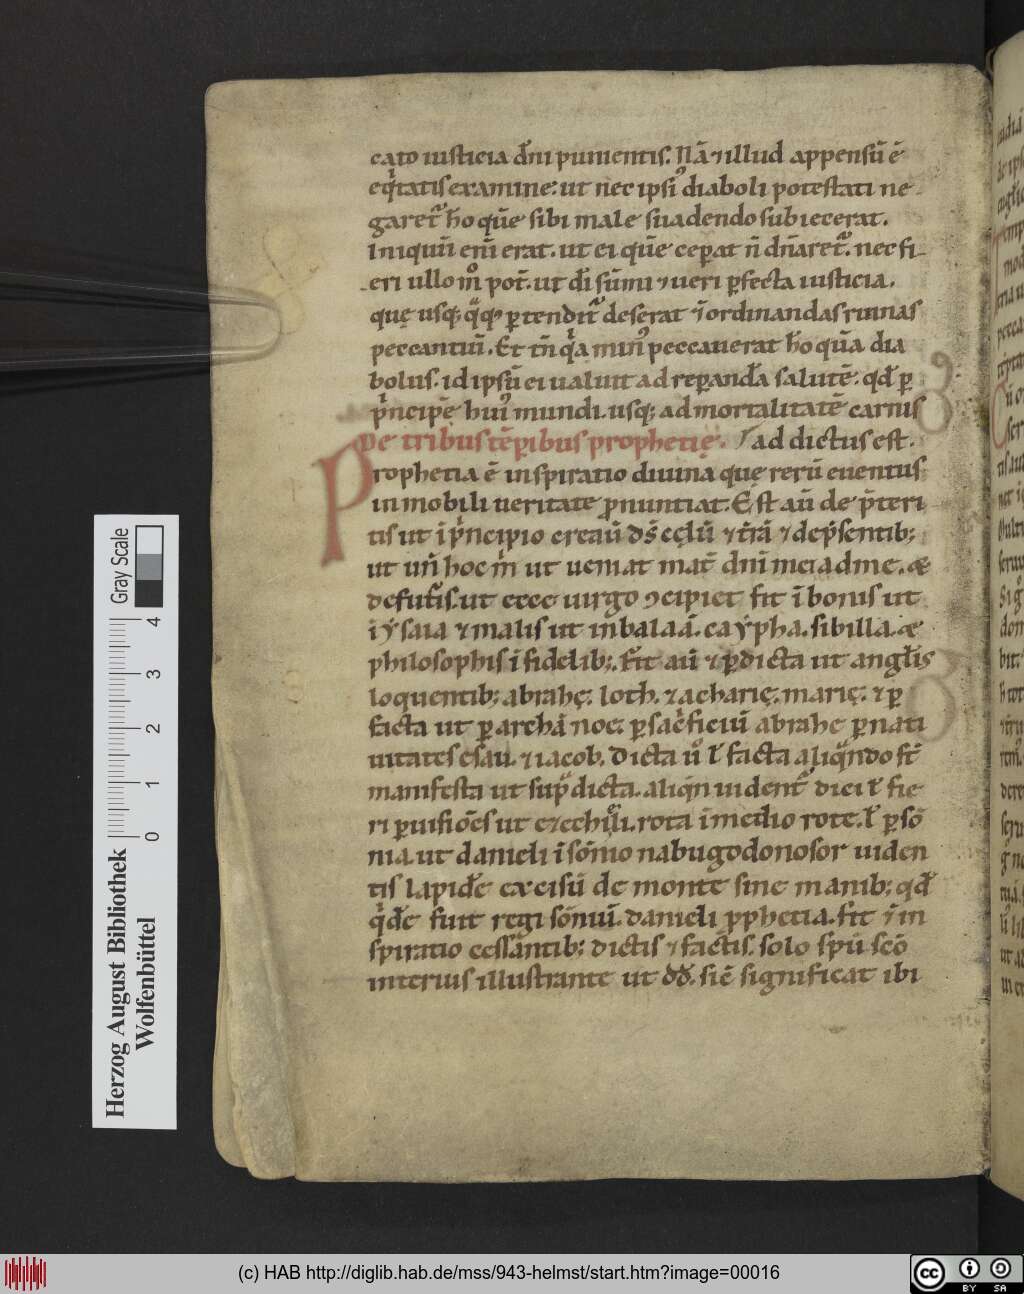 cato iusticia dn̄i punientis. Nā ⁊ illud appensū ē
eq͛tatis examine: ut nec ipsiꝰ diaboli potestati ne
garet᷑ hō quē sibi male suadendo subiecerat.
Iniquū eni̅ erat. ut ei quē ceꝑat n̄ dn̄aret᷑. nec fi
eri ullo m̊ pot̄. ut dī sūmi ⁊ ueri ꝑfecta iusticia.
quę usq; ꝑtendit᷑ deserat ī ordinandas ruinas
peccantiū. Et peccauerat hō quā dia
bolus. id ipsū ei ualuit ad reꝑandā salutē. qđ ꝑ
p͛ncipē huiꝰ mundi. usq; ad mortalitatē carnis
De tribus tēꝑibus prophetię. ad dictus est.
Prophetia ē inspiratio diuina quę rerū euentus
inmobili ueritate ꝓnuntiat. Est aū de p̄teri
tis ut ī p͛ncipio creaū ds̄ cęlū ⁊ t̄rā ⁊ de p̄sentib;
ut un̄ hoc m̄ ut ueniat mat̄ dn̄i mei ad me. æ
de fut᷑is. ut ecce uirgo ꝯcipiet fit ī bonis ut
ī ẏsaia ⁊ malis ut in balaā. caẏpha. sibilla. æ
philosophis īfidelib;. Fit aū ⁊ ꝑ dicta ut angl̄is
loquentib; abrahę. loth. zacharię. marię. ⁊ ꝑ
facta ut ꝑ archā noe. ꝑ sac͛ficiū abrahe ꝑ nati
uitates esau. ⁊ iacob. Dicta ů ł facta aliq̄ndo st̄
manifesta ut sup̄dicta. aliq̄n uident᷑ dici ł fie
ri ꝑ uisiōes ut ezechīli. rota ī medio rote. ł ꝑ sō
nia. ut danieli ī sōnio nabugodonosor uiden
tis lapidē excisū de monte sine manib; qđ
q͛dē fuit regi sōniū. danieli ꝓphetia. fit ⁊ in
spiratio cessantib; dictis ⁊ factis. solo sp̄u scō
interius illustrante ut dd̄. sic̄ significat ibi
Herzog August Bibliothek
Wolfenbüttel
Gray Scale
0 1 2 3 4
(c) HAB http://diglib.hab.de/mss/943-helmst/start.htm?image=00016
cc BY SA